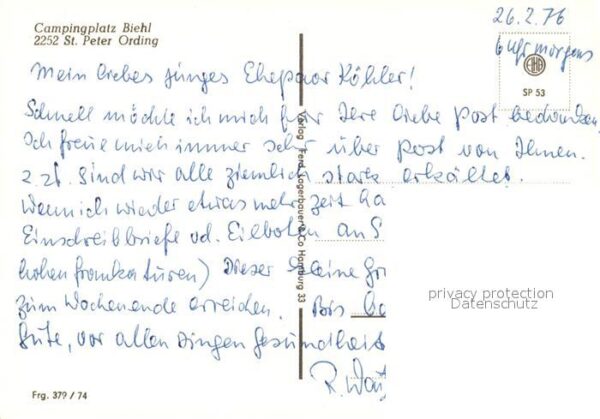 Campingplatz Biehl
2252 St. Peter Ording
26.2.76
6 Uhr morgens
EHB
SP 53
Mein liebes junges Ehepaar Köhler!
Schnell möchte ich mich für Ihre liebe Post bedanken.
Ich freue mich immer sehr über Post von Ihnen.
z.Zt. sind wir alle ziemlich stark erkältet.
Wenn ich wieder etwas mehr Zeit ha
Einschreibbriefe od. Eilboten an S
hohen Frankaturen) Dieser kleine Gr
zum Wochenende erreichen. Bis
Gute, vor allen Dingen Gesundheit
R. Wa
Verlag Ferd. Lagerbauer & Co Hamburg 33
privacy protection
Datenschutz
Frg. 379/74